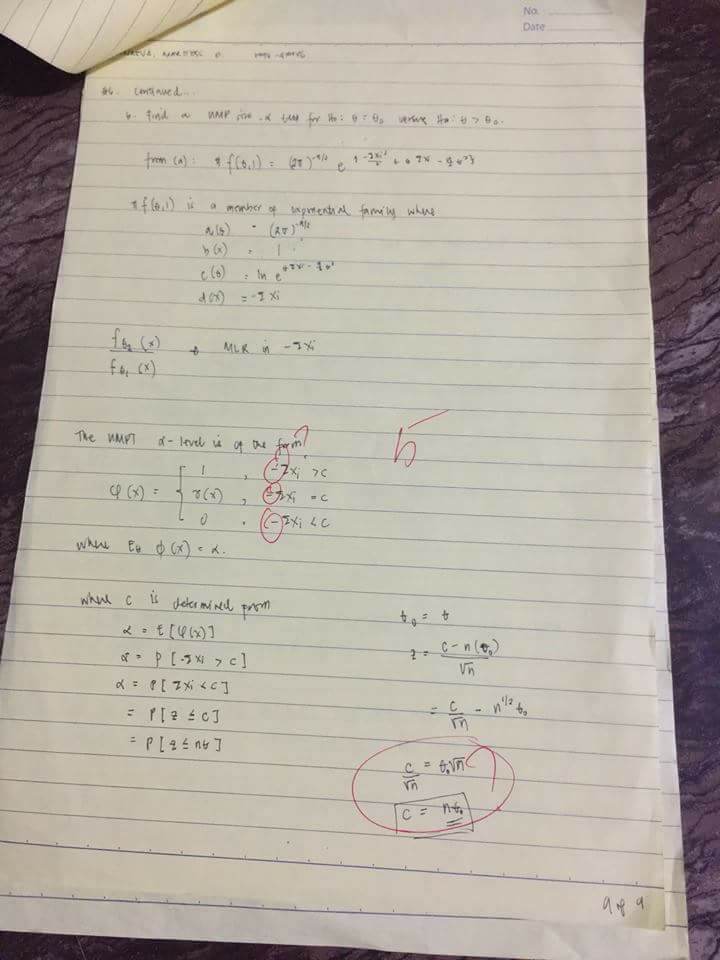 No.
Date
#6. continued...
b. Find a UMP size-α test for H₀: θ = θ₀ versus Hₐ: θ > θ₀.
from (a): π f(θ,1) = (2π)^(-n/2) e^{-Σxi²/2 + θ Σxi - n/2 θ²}
π f(θ,1) is a member of exponential family where
a(θ) = (2π)^(-n/2)
b(x) = 1
c(θ) = ln e^(θΣxi - n/2 θ²)
d(x) = -Σxi
fθ₂(x) / fθ₁(x) → MLR in -Σxi
The UMPT α-level is of the form ?
5
φ(x) = { 1 , -Σxi > c
γ(x) , -Σxi = c
0 , -Σxi < c
where Eθ φ(x) = α.
where c is determined from
α = E[φ(x)]
α = P[-Σxi > c]
α = P[Σxi < c]
= P[z ≤ c]
= P[z ≤ nθ]
θ₀ = θ
z = (c - n(θ₀)) / √n
= c/√n - n^(1/2) θ₀
c/√n = θ₀√n ?
c = nθ₀
9 of 9